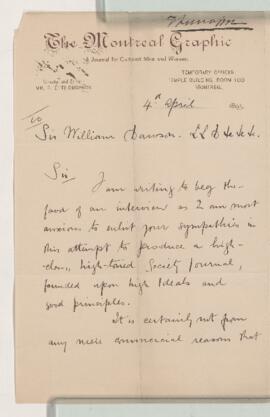 The Montreal Graphic
A Journal for Cultured Men and Women.
TEMPORARY OFFICES
TEMPLE BUILDING, ROOM 100
MONTREAL
4th April
To
Sir William Dawson. LL D &c &c &c.
Sir
I am writing to beg the
favor of an interview as I am most
anxious to enlist your sympathies in
this attempt to produce a high-
class, high-toned Society Journal,
founded upon high Ideals and
good principles.
It is certainly not from
any mere commercial reasons that